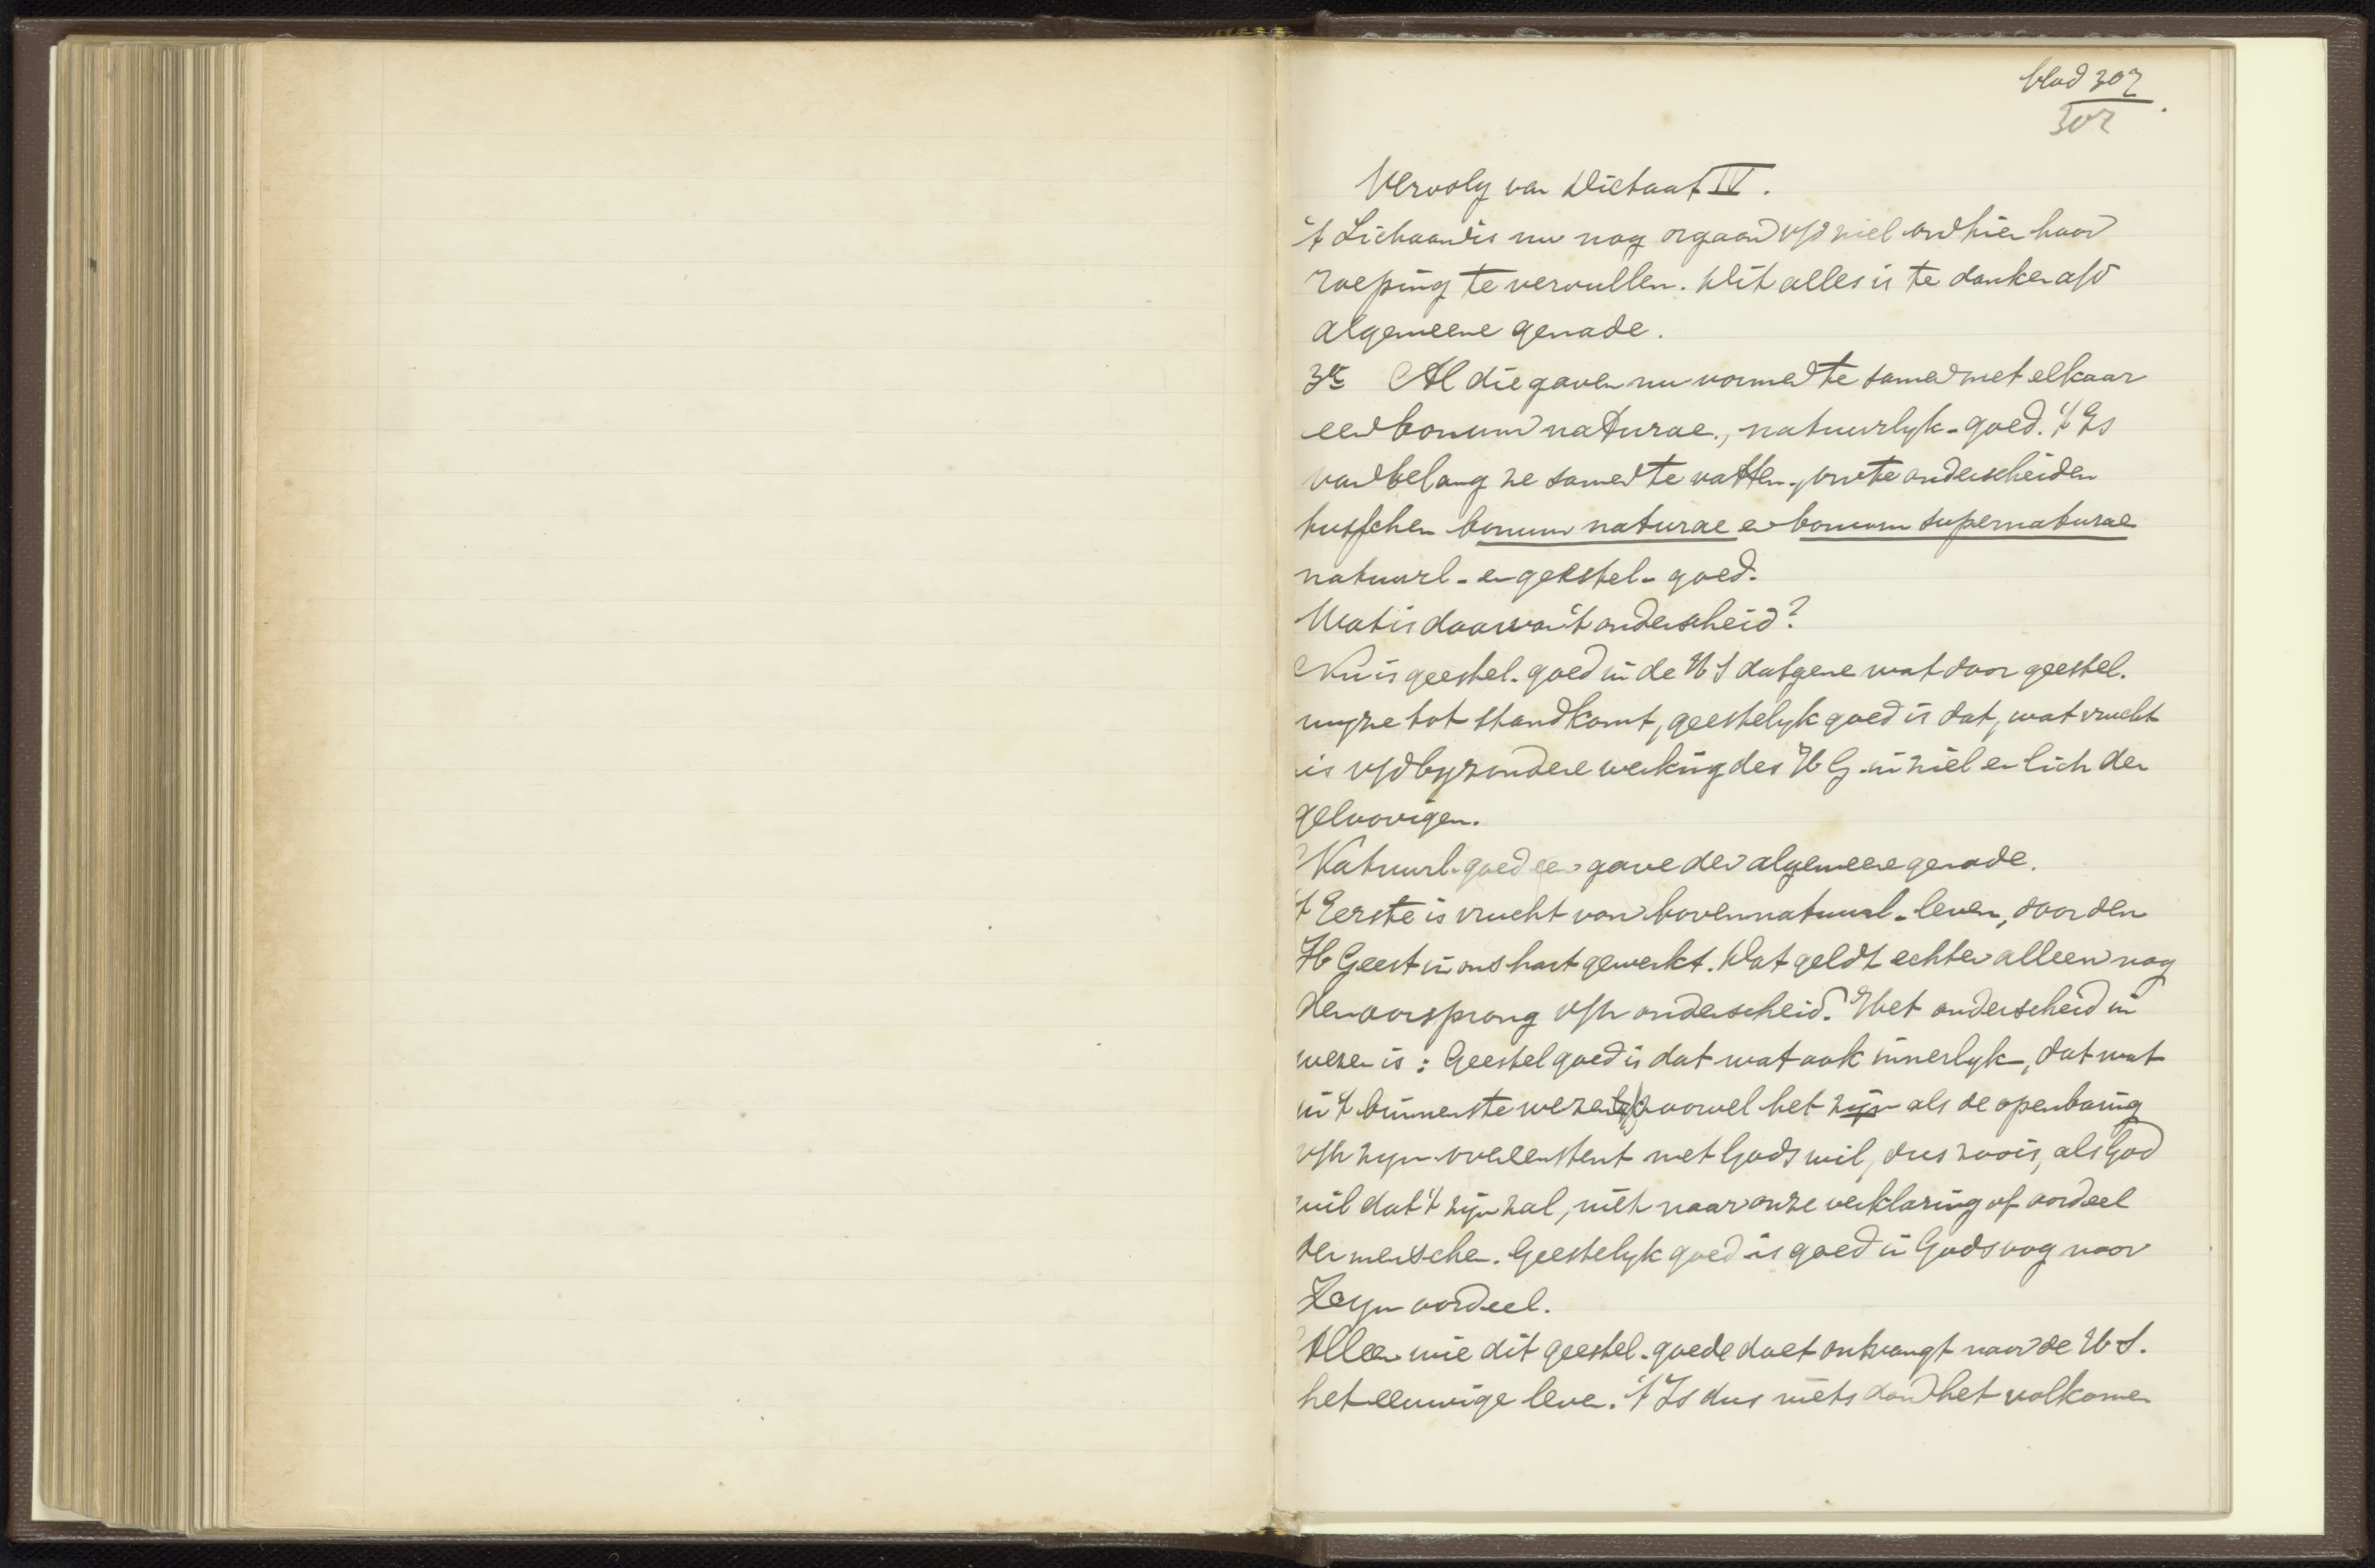 blad 307
307
Vervolg van Dictaat IV.
't Lichaam is nu nog orgaan v/d ziel om hier haar
roeping te vervullen. Dit alles is te danken a/d
algemeene genade.
3e Al die gaven nu vormen te samen met elkaar
een bonum naturae, natuurlyk-goed. 't Is
van belang ze samen te vatten, om te onderscheiden
tusschen bonum naturae en bonum supernaturae
natuurl- en geestel- goed.
Wat is daarvan 't onderscheid?
Nu is geestel. goed in de H S datgene wat door geestel.
wyze tot stand komt, geestelyk goed is dat, wat vrucht
is v/d byzondere werking des H G. in ziel en lich der
geloovigen.
Natuurl. goed een gave der algemeene genade.
't Eerste is vrucht van bovennatuurl- leven, door den
H Geest in ons hart gewerkt. Dat geldt echter alleen nog
den oorsprong v/h onderscheid. Het onderscheid in
wezen is: Geestel goed is dat wat ook innerlyk, dat wat
in 't binnenste wezen zoowel het zijn als de openbaring
v/h zyn overeenstemt met Gods wil, dus zoo is, als God
wil dat 't zijn zal, niet naar onze verklaring of oordeel
der menschen. Geestelyk goed is goed in Gods oog naar
Zyn oordeel.
Alleen wie dit geestel. goede doet ontvangt naar de H S.
het eeuwige leven. 't Is dus niets dan het volkomen